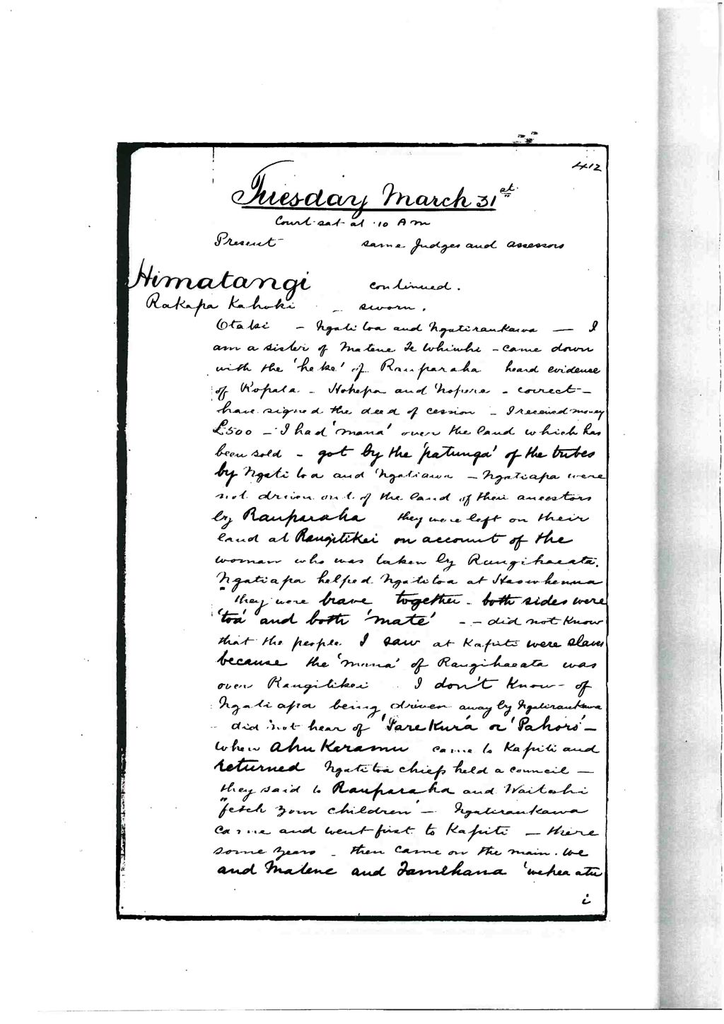 412
Tuesday March 31st
Court sat at 10 A m
Present same Judges and assessors
Himatangi continued.
Rakapa Kahoki - sworn.
Otaki - Ngatitoa and Ngatiraukawa - I
am a sister of Matene Te Whiwhi - came down
with the 'heke' of Rauparaha heard evidence
of - Hohepa and - correct -
have signed the deed of cession - I received money
£500 - I had 'mana' over the land which has
been sold - got by the 'patunga' of the tribes
by Ngatitoa and Ngatiawa - Ngatiapa were
not driven out of the land of their ancestors
by Rauparaha they were left on their
land at Rangitikei on account of the
woman who was taken by Rangihaeata.
Ngatiapa helped Ngatitoa at
"they were brave together - both sides were
'toa' and both 'mate' - - did not know
that the people I saw at Kapiti were slaves
because the 'mana' of Rangihaeata was
over Rangitikei I don't know - of
Ngatiapa being driven away by Ngatiraukawa
- did not hear of 'Parekura' or 'Pahoro' -
When Ahu Karamu came to Kapiti and
returned Ngatitoa chiefs held a council -
they said to Rauparaha and Waitohi
"fetch your children" - Ngatiraukawa
came and went first to Kapiti - there
some years - then came on the main. We
and Matene and Tamihana 'wehea atu
i